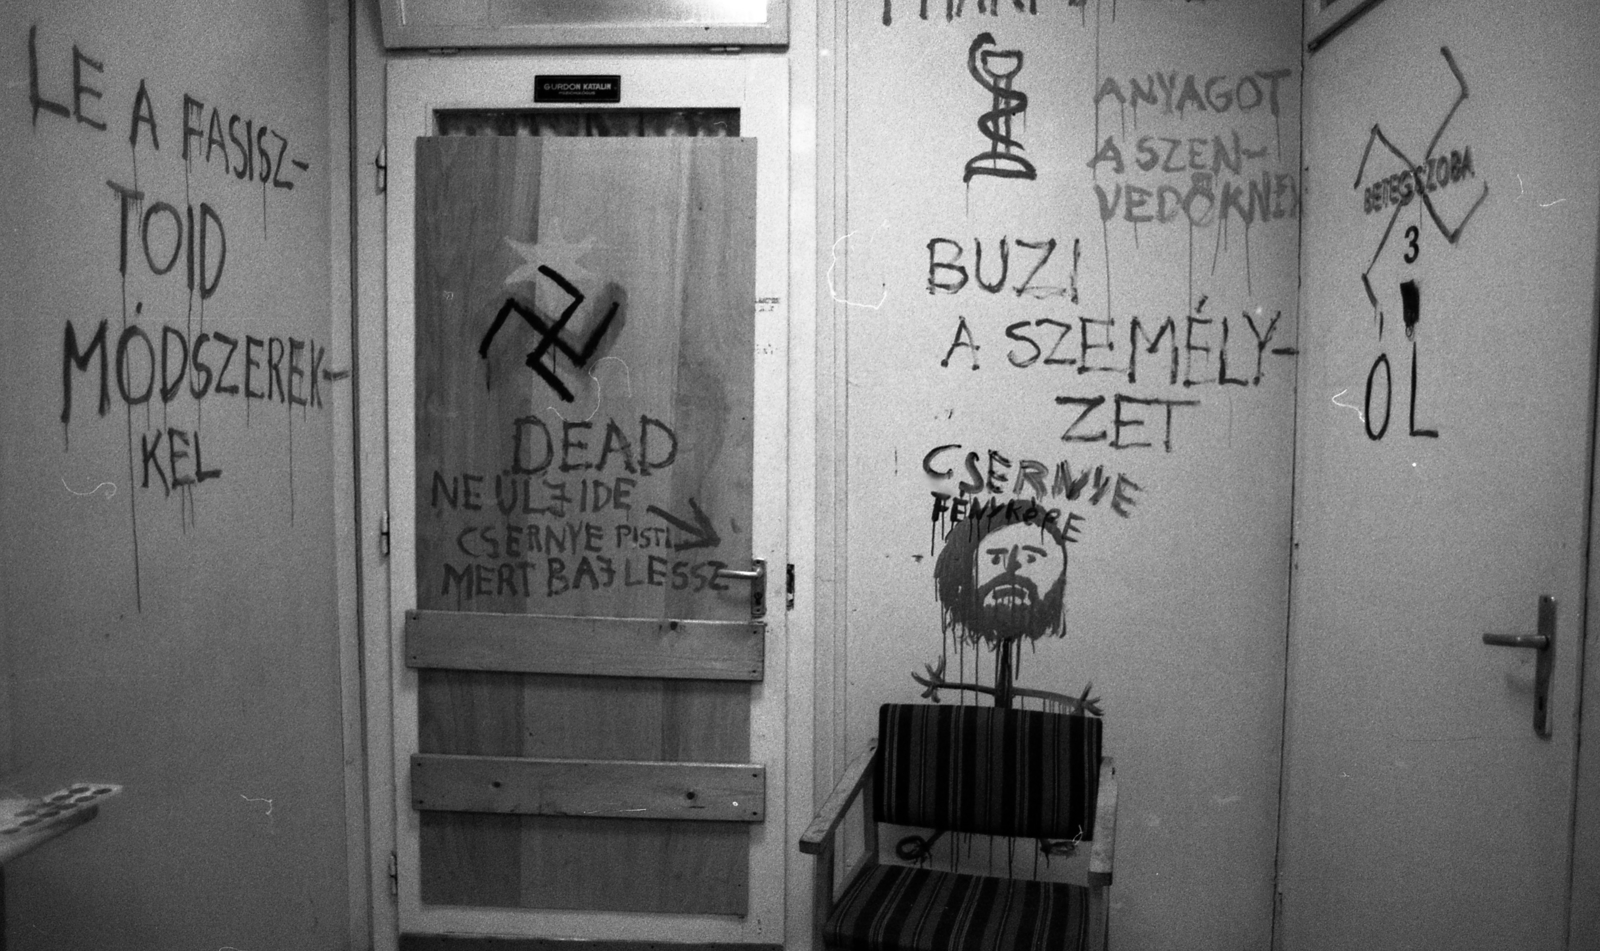 LE A FASISZ-
TOID
MÓDSZEREK-
KEL
GURDON KATALIN
DEAD
NE ÜLJ IDE
CSERNYE PISTI
MERT BAJ LESSZ
ANYAGOT
A SZEN-
VEDŐKNEK
BUZI
A SZEMÉLY-
ZET
CSERNYE
FÉNYKÉPE
BETEGSZOBA
3
ÖL